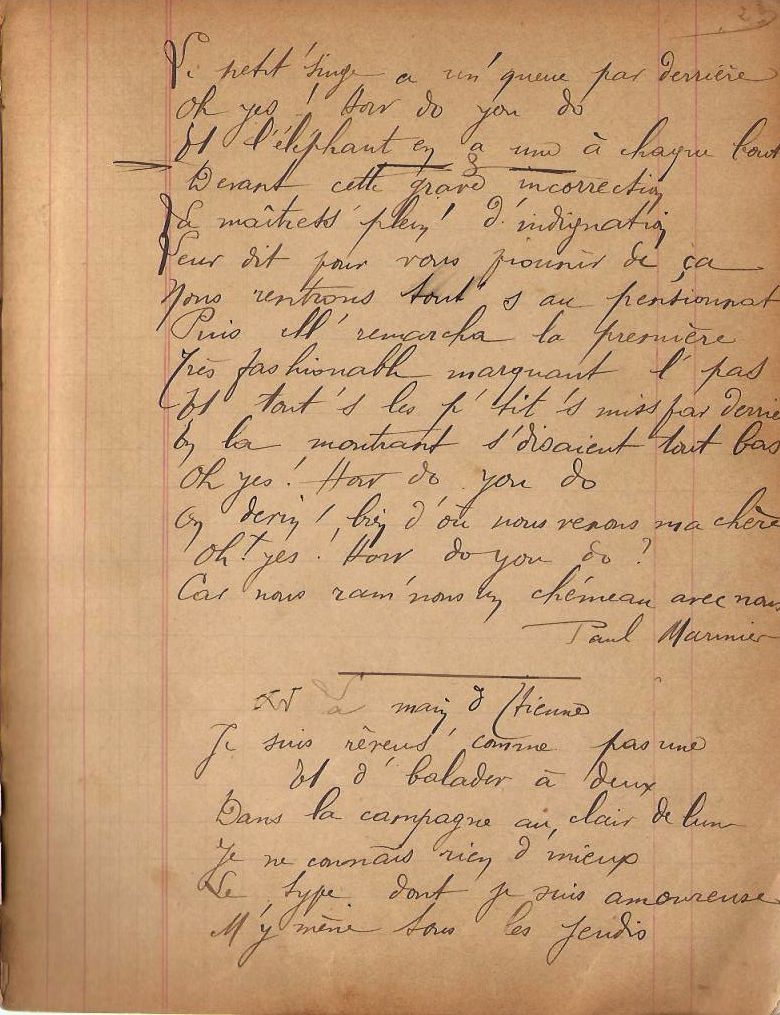 Le petit singe a un' queue par derrière
Oh yes ! How do you do
Et l'éléphant en a une à chaque bout
3
Devant cette grave incorrection
La maîtress' plein' d'indignation
Leur dit pour vous piounir de ça
Nous rentrons tout's au pensionnat
Puis ell' remarcha la première
Très fashionabl marquant l' pas
Et tout's les p'tit's miss par derriè
En la montrant s'disaient tout bas
Oh yes ! How do you do
On devin' bien d'où nous venons ma chère
Oh ! yes ! How do you do ?
Car nous ram'nons un chémeau avec nous
Paul Marinier
XV La main d'Etienne
Je suis rêveus' comme pas une
Et d' balader à deux
Dans la campagne au clair de lune
Je ne connais rien d'mieux
Le type dont je suis amoureuse
M'y mène tous les jeudis